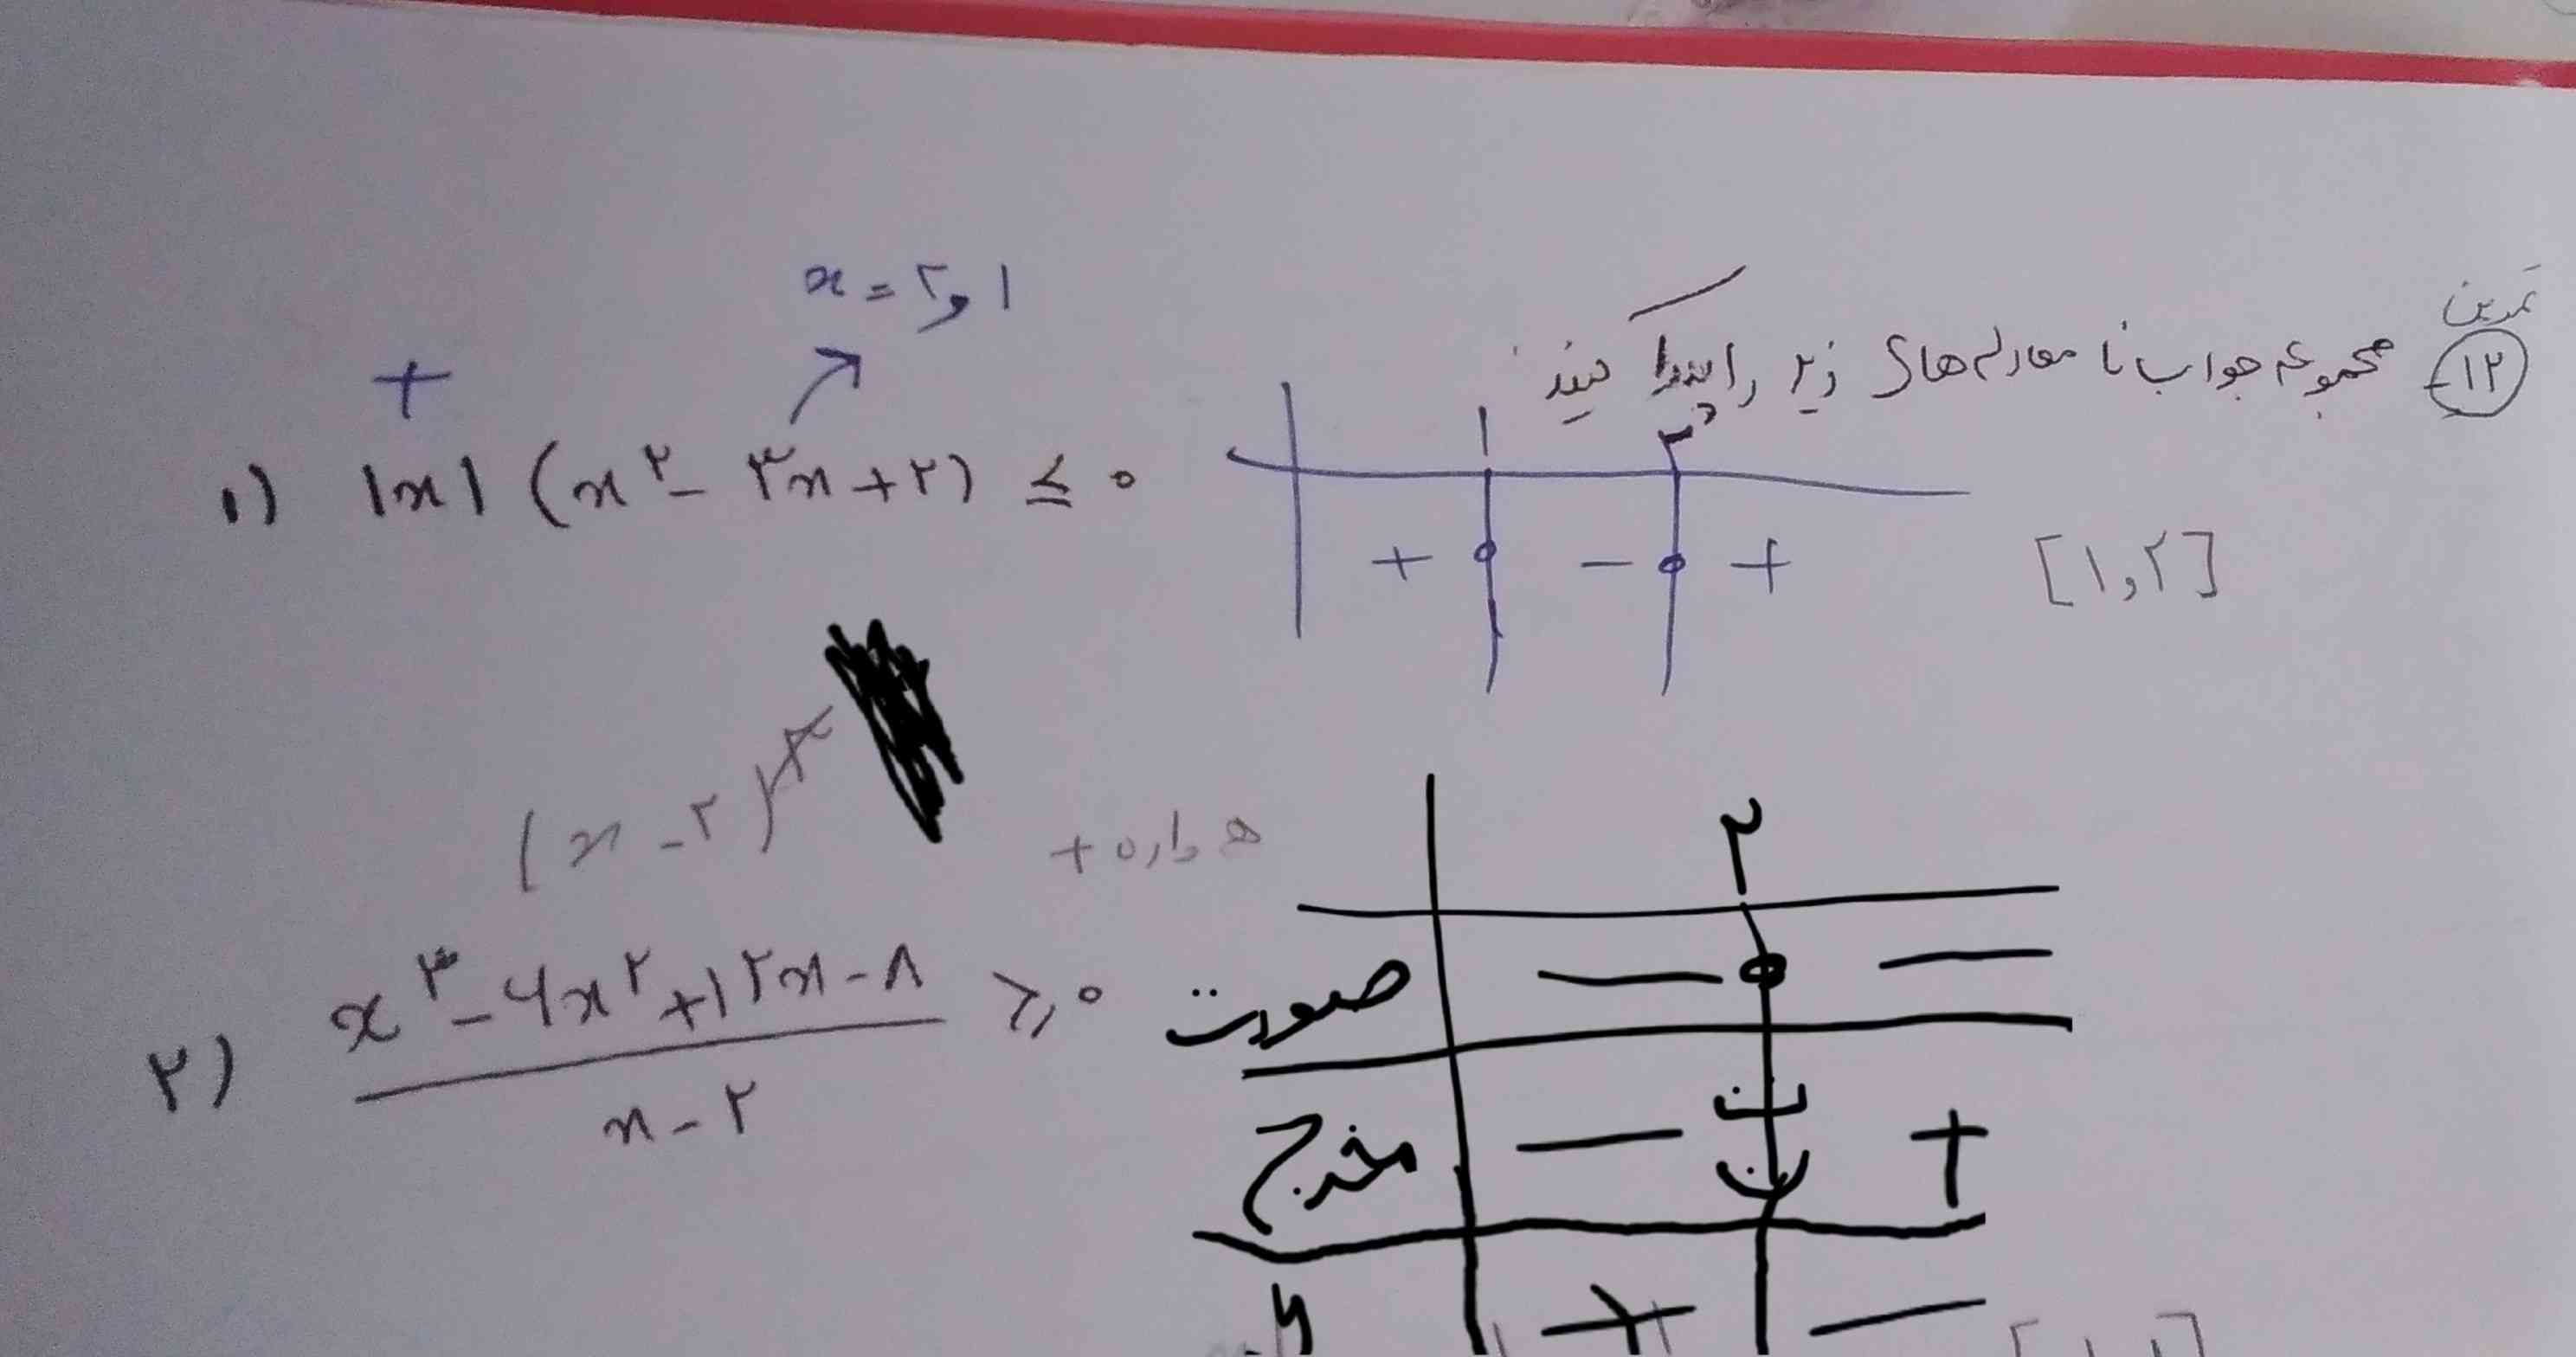 تمرین
۱۲- مجموعه جواب نامعادله‌های زیر را پیدا کنید:
x = ۲ و ۱
+
۱) |x| (x^۲ - ۳x + ۲) ≤ ۰
۱ ۲
+ - +
[۱,۲]
(x - ۲)^۳
همواره +
۲) x^۳ - ۶x^۲ + ۱۲x - ۸ / x - ۲ ≥ ۰
۲
صورت — ० —
مخرج — ت ن +
+ —